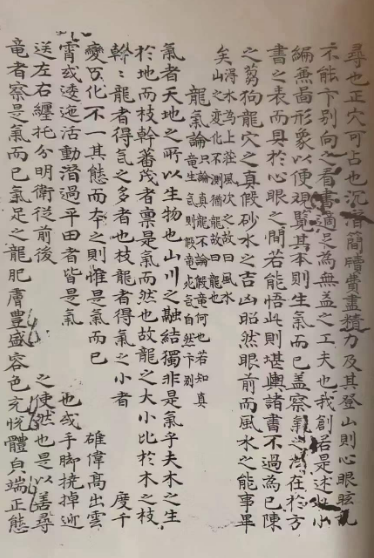 尋也正穴可占也沉潛簡牘費盡精力及其登山則心眼眩
不能卞別向之看書適足為無益之工夫也我創是述
編兼啚形象以便觀覽其本則生氣而已盖察氣之在於方
書之表而具於心眼之間若能悟此則堪輿諸書不過為已陳
之芻狗龍穴之真假砂水之吉凶昭然眼前而風水之能事畢
矣 得水為上莊風次之故曰風水
山之變化不測猶龍故曰龍
龍氣論 只論真龍不論假龍何也若知真
龍生氣則假龍死氣自然卞別
氣者天地之所以生物也山川之融結獨非是氣乎夫木之生
於地而枝幹畨茂者禀是氣而然也故龍之大小比於木之枝
幹幹龍者得氣之多者也枝龍者得氣之小者 度千
變万化不一其態而本之則惟是氣而已 雄偉高出雲
霄或逶迤活動潛過平田者皆是氣 也或手脚撓掉近
送左右纏托分明衛從前後 之使然也是以善尋
竜者察是氣而已氣足之龍肥膚豊盛容色光悅體真端正態